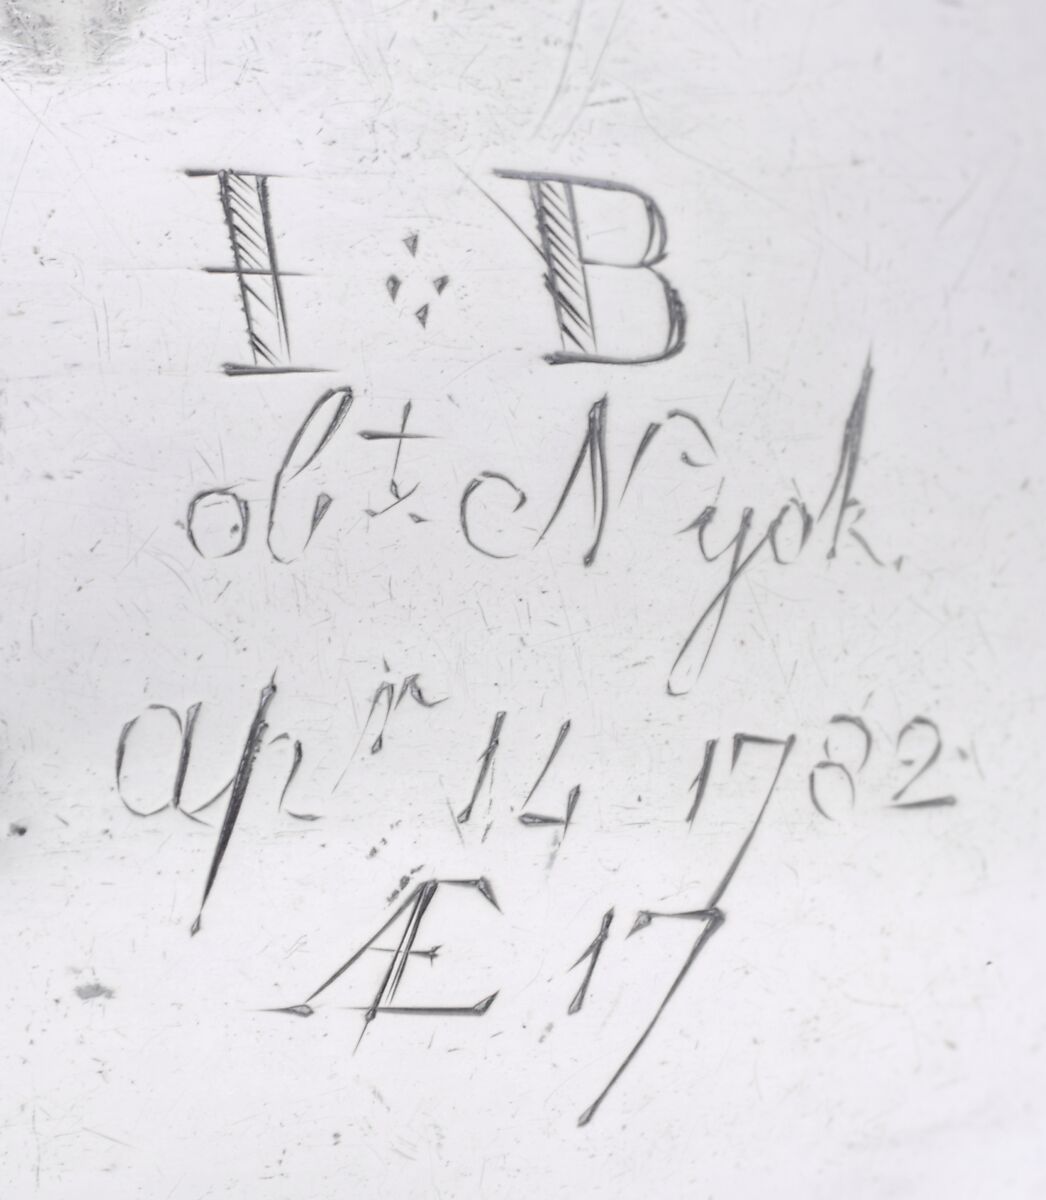 I B
obt Nyok.
Apr 14 1782
Æ 17